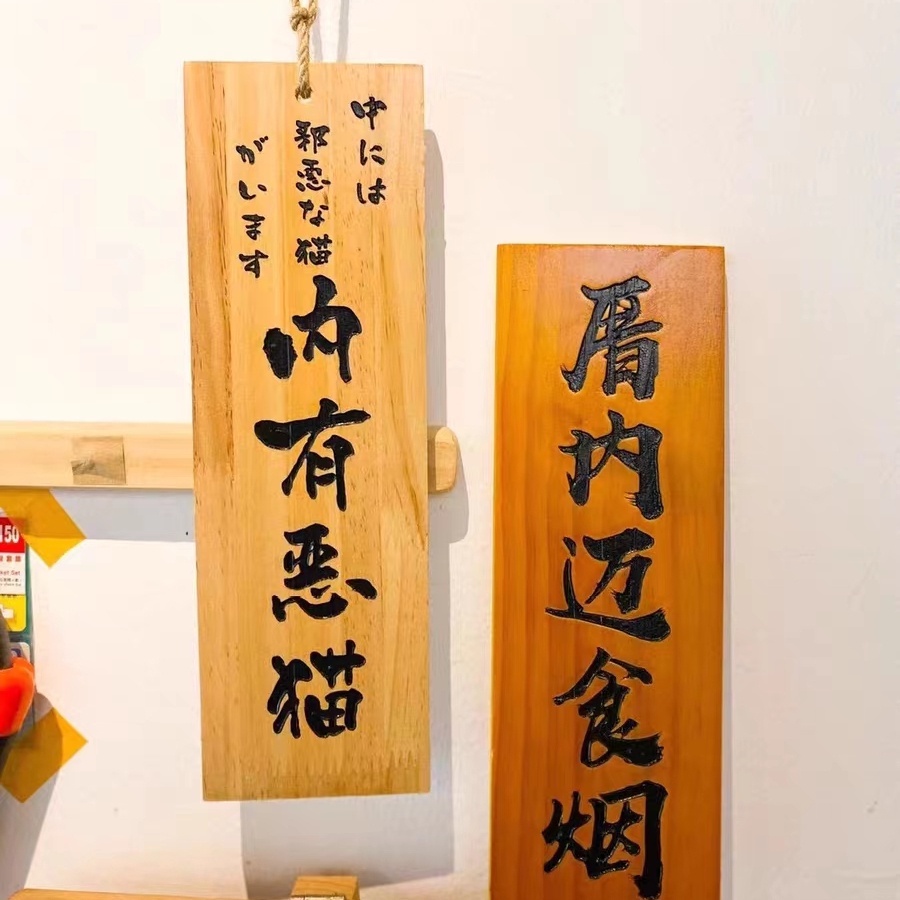 中には
邪悪な猫
がいます
内有恶猫
厝内迈食烟
50